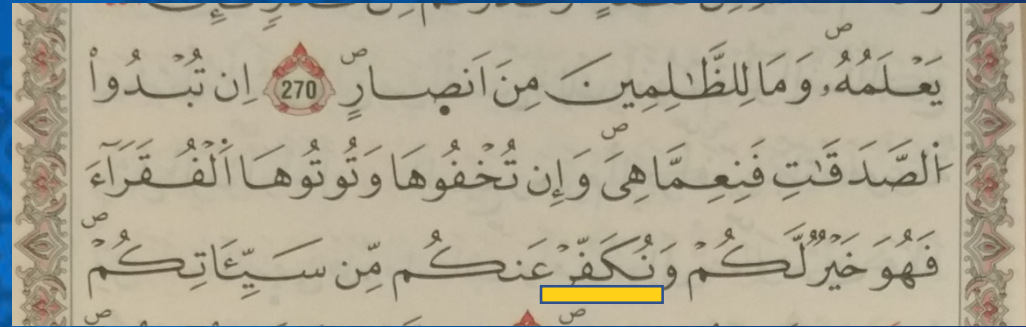 يَعْلَمُهُۥ وَمَا لِلظَّٰلِمِينَ مِنَ اَنصِارٍ 270 اِن تُبْدُواْ
اُ۬لصَّدَقَٰتِ فَنِعِمَّا هِىَ وَإِن تُخْفُوهَا وَتُوتُوهَا اَ۬لْفُقَرَآءَ
فَهُوَ خَيْرٌ لَّكُمْ وَنُكَفِّرْ عَنكُم مِّن سَيِّـَٔاتِكُمْ